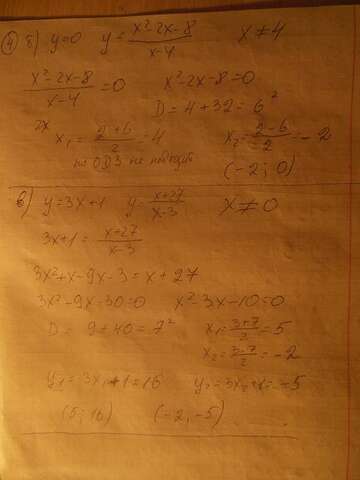 ④ б) y=0 y = (x²-2x-8)/(x-4) x ≠ 4
(x²-2x-8)/(x-4) = 0 x²-2x-8=0
D = 4+32 = 6²
x₁ = (2+6)/2 = 4 x₂ = (2-6)/2 = -2
по ОДЗ не подходит (-2; 0)
в) y=3x+1 y = (x+27)/(x-3) x ≠ 0
3x+1 = (x+27)/(x-3)
3x²+x-9x-3 = x+27
3x²-9x-30=0 x²-3x-10=0
D = 9+40=7² x₁ = (3+7)/2 = 5
x₂ = (3-7)/2 = -2
y₁ = 3x₁+1=16 y₂ = 3x₂+1=-5
(5; 16) (-2, -5)